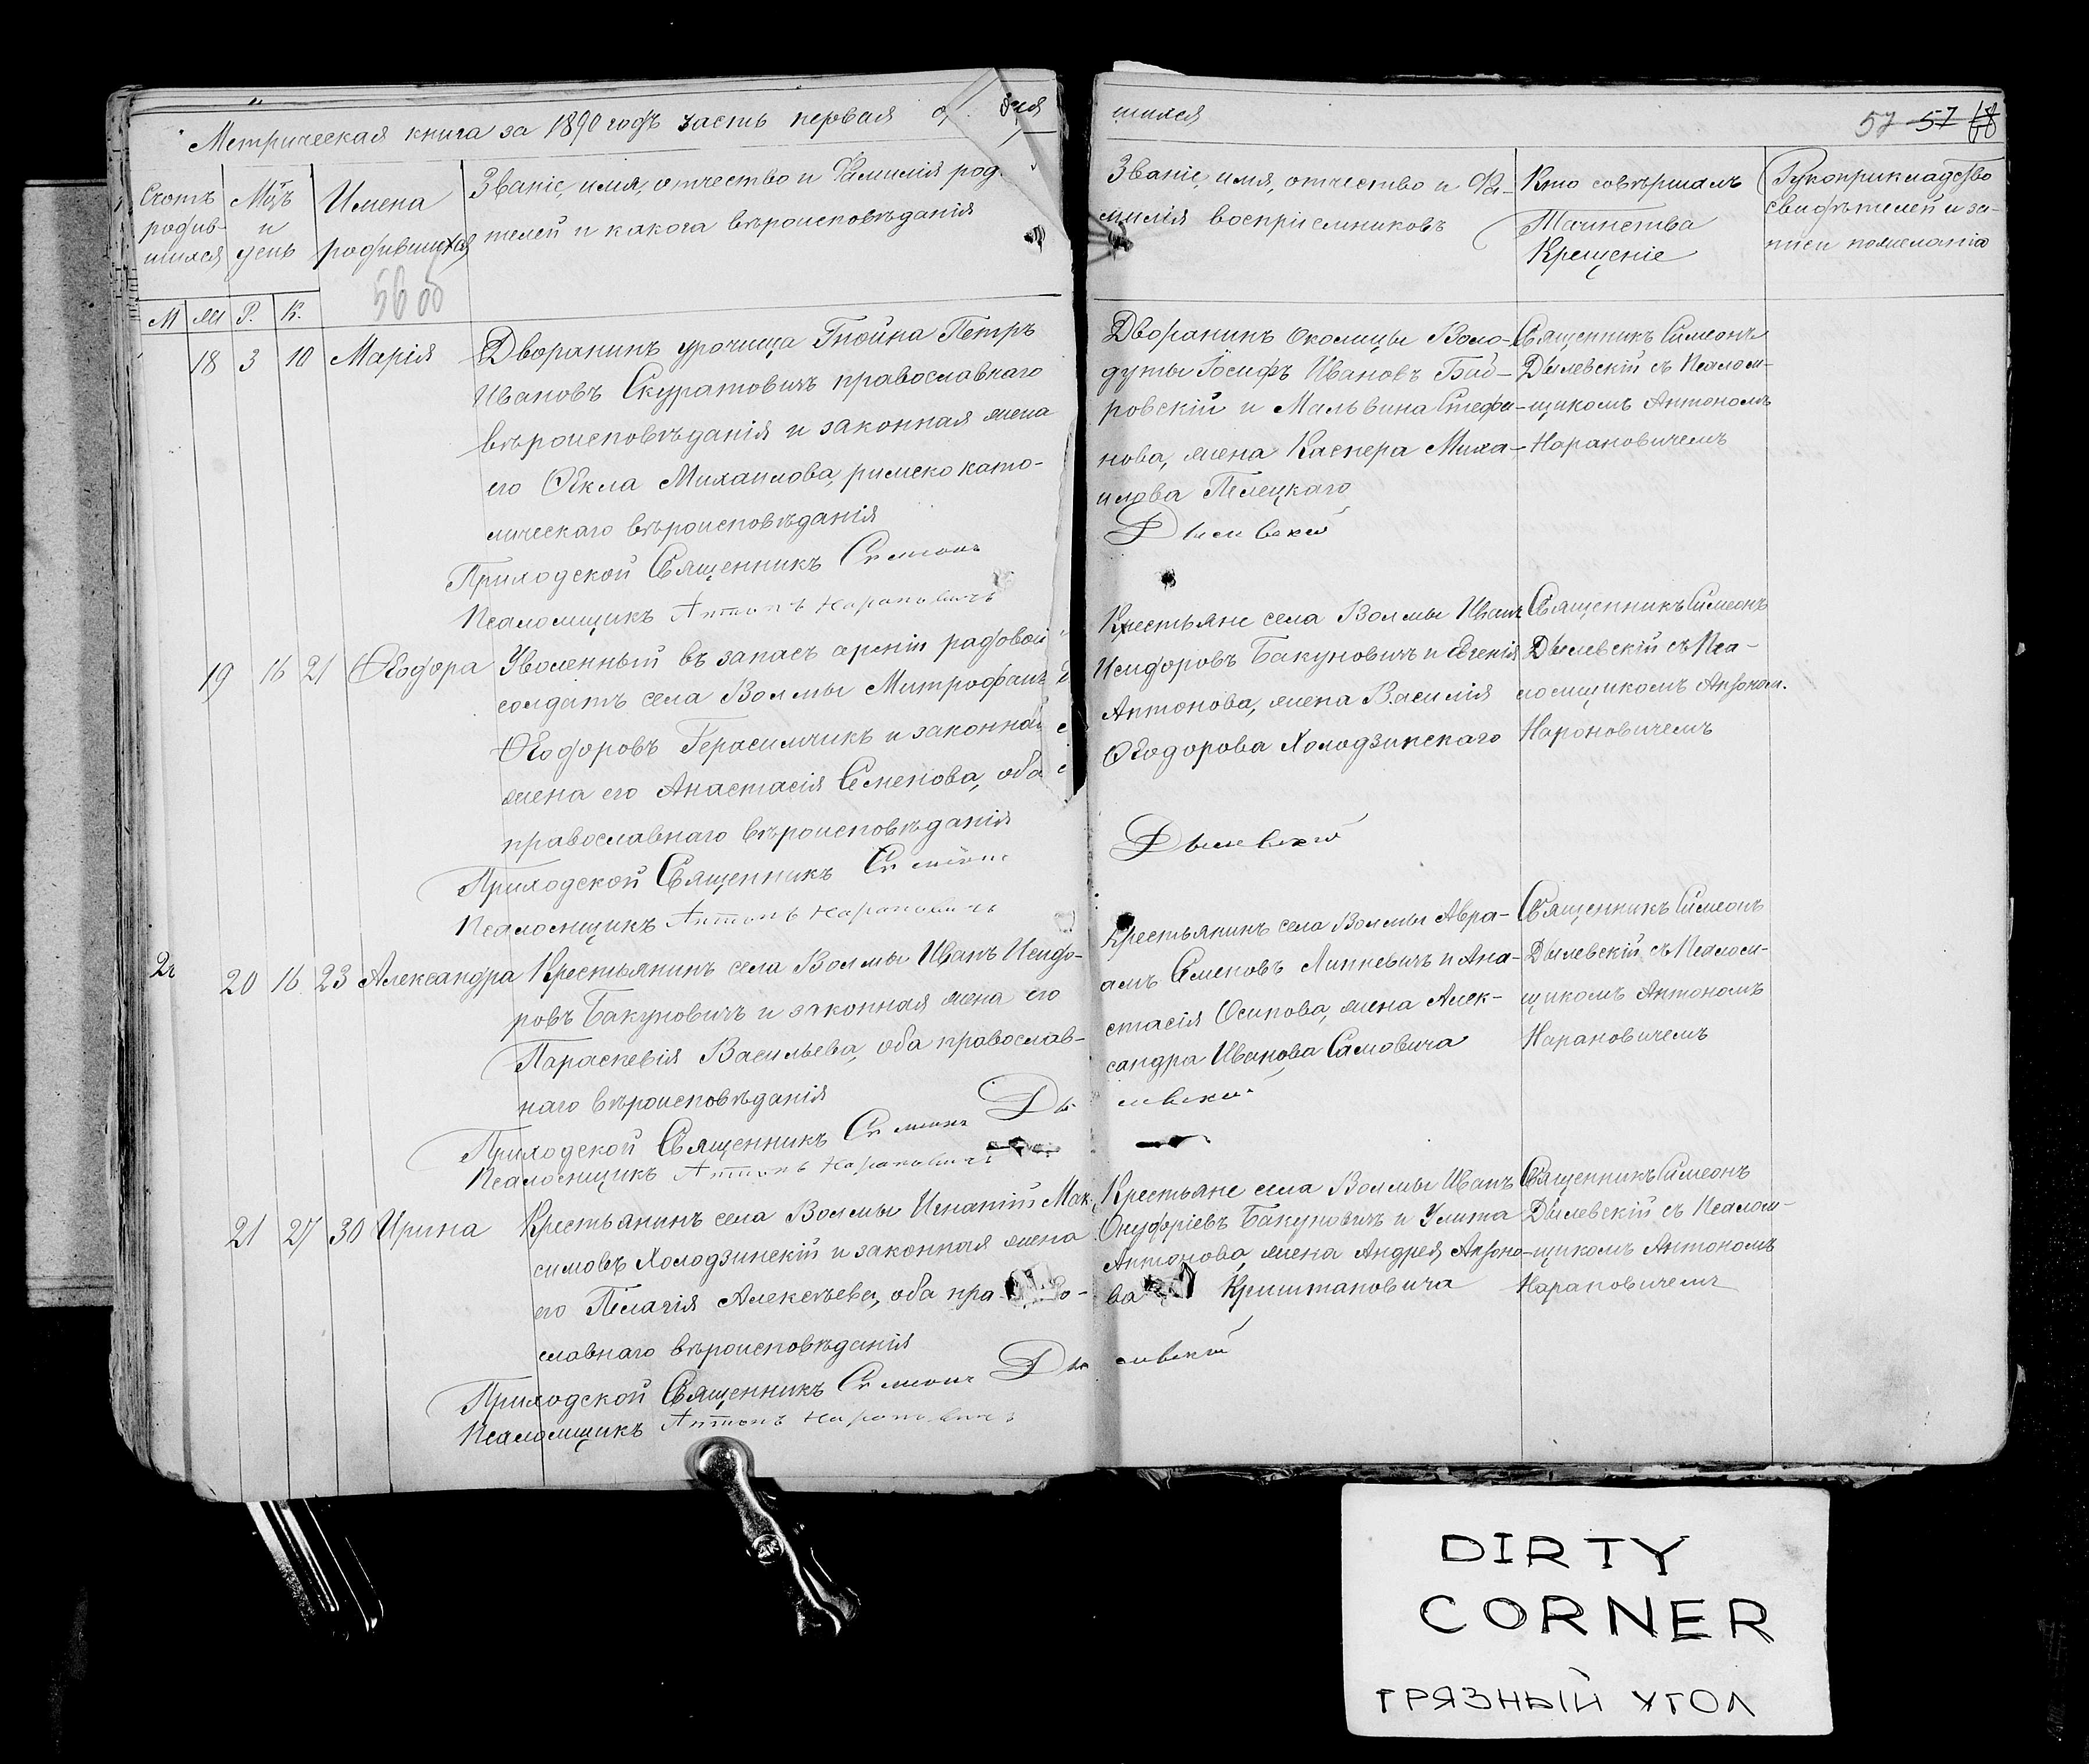 Метрическая книга за 1890 годъ часть первая о
шихся
57 57
Счотъ родив- шихся
Мцъ и день
Имена родившихся
56 об
Званіе, имя, отчество и Фамилія род.
телей и какога вѣроисповѣданія
Званіе, имя, отчество и Фа-
милія воспріемниковъ
Кто совѣршалъ
Таинства
Крещеніе
Рукоприкладство
свидѣтелей и за-
писи
М М Р. К.
18 3 10 Марія
Дворанинъ урочища Гнойна Петръ
Ивановъ Скуратовичъ православнаго
вѣроисповѣданія и законная жена
его Ѳекла Михаилова, римско като-
лическаго вѣроисповѣданія
Приходской Священникъ Симеонъ
Псаломщикъ Антонъ Нарановичъ
Дворанинъ Околицы Воло-
дуты Іосифъ Ивановъ
ровскій и Мальвина Стефа-
нова, жена Каспера Миха-
илова Пѣлецкаго
Дылевскій
Священникъ Симеонъ
Дылевскій съ Псалом-
щикомъ Антономъ
Нарановичемъ
19 16 21 Ѳеодора
Уволенный въ запасъ арміи рядовой
солдатъ села Волмы Митрофанъ
Ѳеодоровъ Герасимчикъ и законная
жена его Анастасія Семенова, оба
православнаго вѣроисповѣданія
Приходской Священникъ Симеонъ
Псаломщикъ Антонъ Нарановичъ
Крестьяне села Волмы Иванъ
Исидоровъ Бакуновичъ и Евгенія
Антонова, жена Василія
Ѳеодорова Холодзинскаго
Дылевскій
Священникъ Симеонъ
Дылевскій съ Пса-
ломщикомъ Антоном.
Нароновичемъ
20 16 23 Александра
Крестьянинъ села Волмы Иванъ Исидо-
ровъ Бакуновичъ и законная жена его
Параскевія Васильева, оба православ-
наго вѣроисповѣданія
Приходской Священникъ Симеонъ Ды
Псаломщикъ Антонъ Нарановичъ
Крестьянинъ села Волмы Авра-
амъ Семеновъ Липкевичъ и Ана-
стасія Осипова, жена Алек-
сандра Иванова Самовича
левскій
Священникъ Симеонъ
Дылевскій съ Псалом-
щикомъ Антономъ
Нарановичемъ
21 27 30 Ирина
Крестьянинъ села Волмы Игнатій Мак-
симовъ Холодзинскій и законная жена
его Пелагія Алексѣева, оба пра о-
славнаго вѣроисповѣданія
Приходской Священникъ Симеонъ Ды
Псаломщикъ Антонъ Нарановичъ
Крестьяне села Волмы Иванъ
Онуфріевъ Бакуновичъ и Улита
Антонова, жена Андрея Антоно-
ва Криштановича
левскій
Священникъ Симеонъ
Дылевскій съ Псалом-
щикомъ Антономъ
Нарановичемъ
DIRTY
CORNER
ГРЯЗНЫЙ УГОЛ